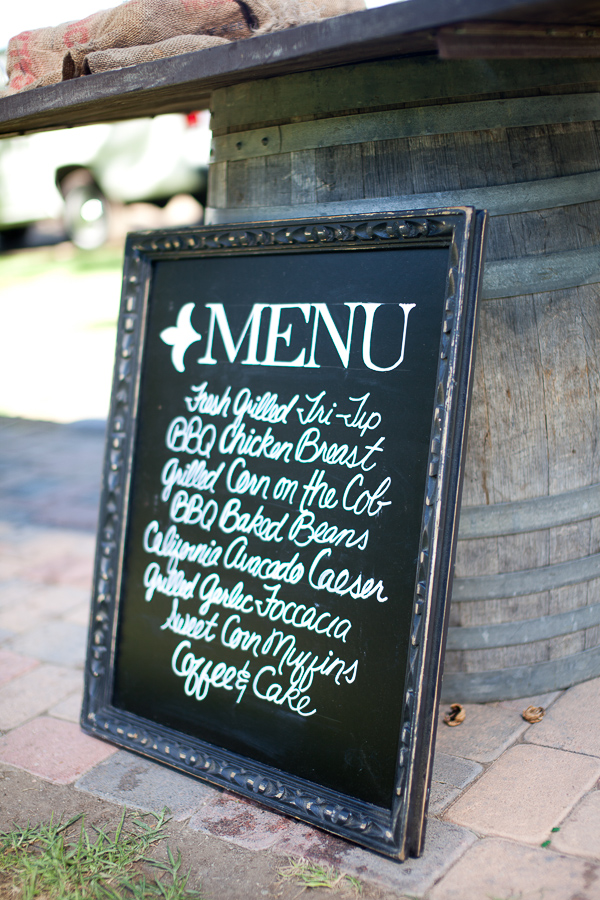 MENU
Fresh Grilled Tri-Tip
BBQ Chicken Breast
Grilled Corn on the Cob
BBQ Baked Beans
California Avacado Caeser
Grilled Garlic Foccacia
Sweet Corn Muffins
Coffee & Cake